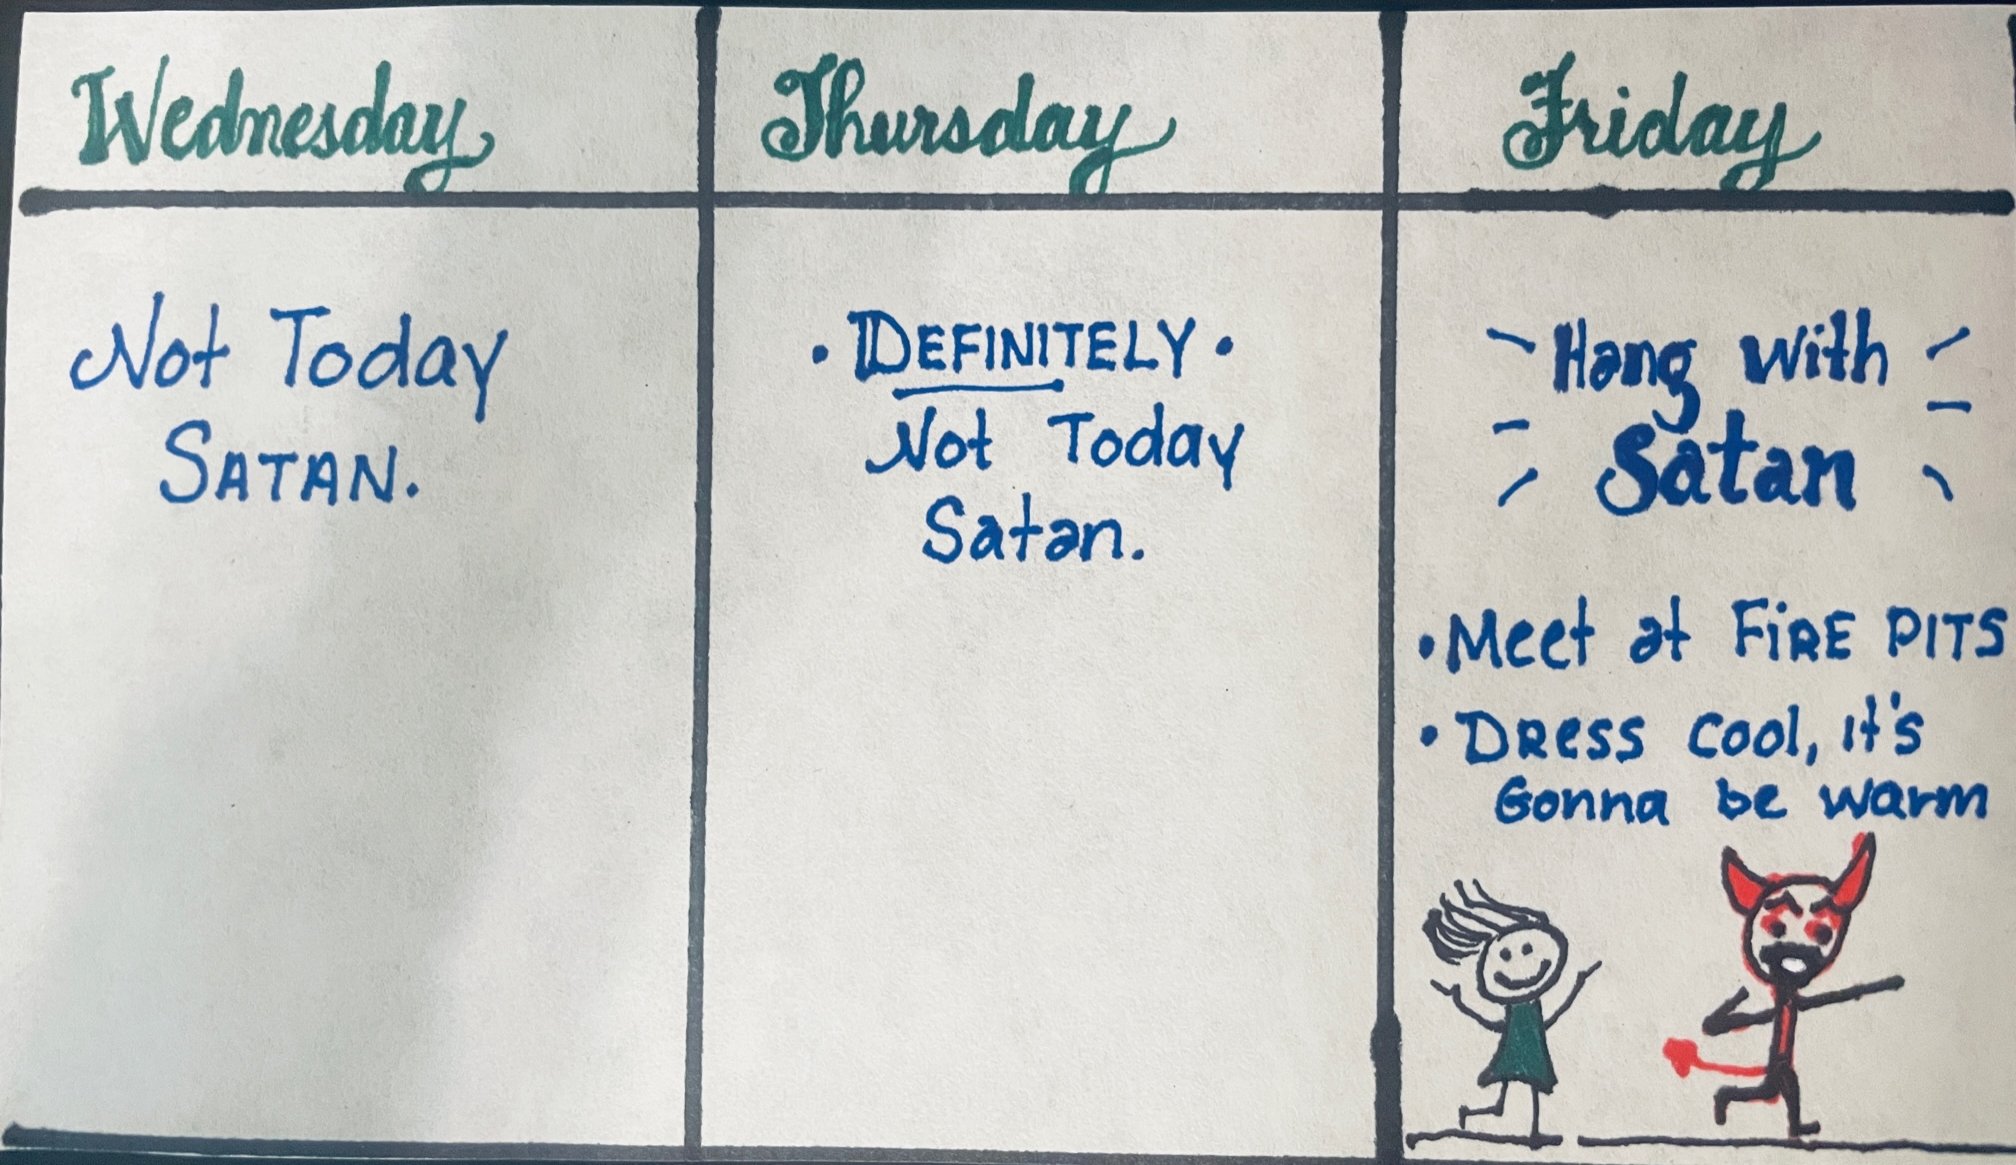 Wednesday
Not Today
SATAN.
Thursday
• DEFINITELY •
Not Today
Satan.
Friday
Hang with
Satan
• Meet at FiRE PITS
• DRess cool, it's
Gonna be warm